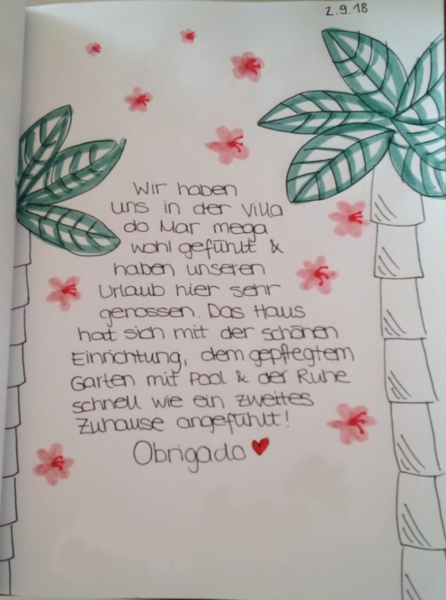 2.9.18
Wir haben
uns in der Villa
do Mar mega
wohl gefühlt &
haben unseren
Urlaub hier sehr
genossen. Das Haus
hat sich mit der schönen
Einrichtung, dem gepflegtem
Garten mit Pool & der Ruhe
schnell wie ein zweites
Zuhause angefühlt!
Obrigado ♥